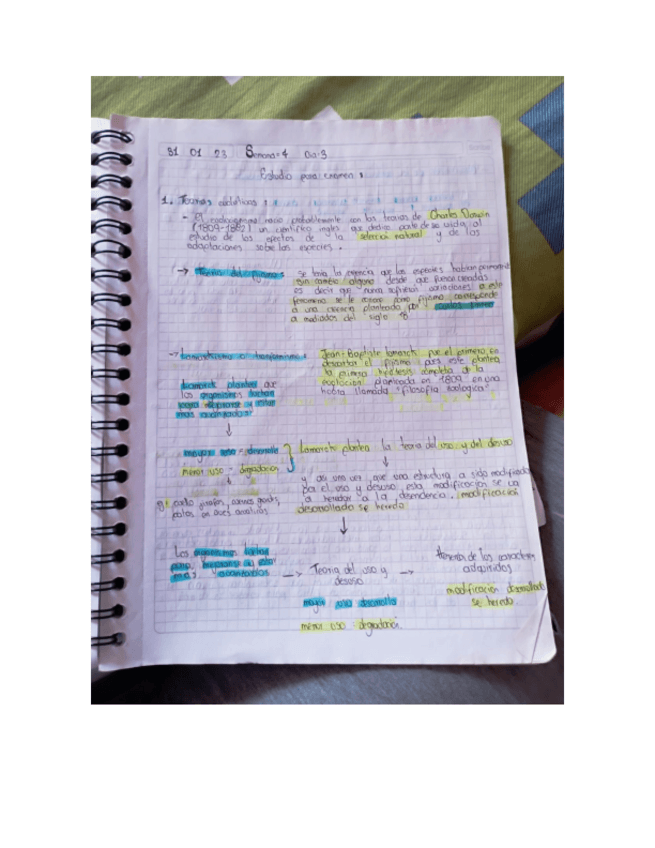 31 01 23 Semana: 4 Dia: 3
Estudio para examen:
1. Teorias evolutivas:
- El evolucionismo nacio probablemente con las teorias de Charles Darwin
(1809-1882) un cientifico ingles que dedico parte de su vida al
estudio de los efectos de la selección natural y de las
adaptaciones sobre las especies.
→ Teoria del fijismo:
Se tenia la creencia que las especies habian permanecido
sin cambio alguno desde que fueron creadas
es decir que nunca sufrieron variaciones a este
fenomeno se le conoce como fijismo corresponde
a una creencia planteada por
a mediados del siglo 18
→ Lamarckismo o transformismo:
Jean-Baptiste lamarck fue el primero en
descartar el fijismo pues este plantea
la primera hipótesis completa de la
evolucion planteada en 1809 en una
llamada "filosofia zoologica"
Lamarck plantea que
los organismos luchan
para y estar
mas
↓
mayor uso - desarrollo
menor uso - degradación
Lamarck plantea la teoria del uso y del desuso
↓
y asi una vez que una estructura a sido modificada
por el uso y desuso, esta modificación se va
a heredar a la desendencia. modificación
desarrollada se heredo
ej: cuello jirafas,
patas en aves
↓
Los organismos luchan
para y estar
mas
→ Teoria del uso y
desuso
→
Herencia de los caracteres
adquiridos
mayor uso desarrollo
menor uso - degradación.
modificación desarrollada
se heredo.